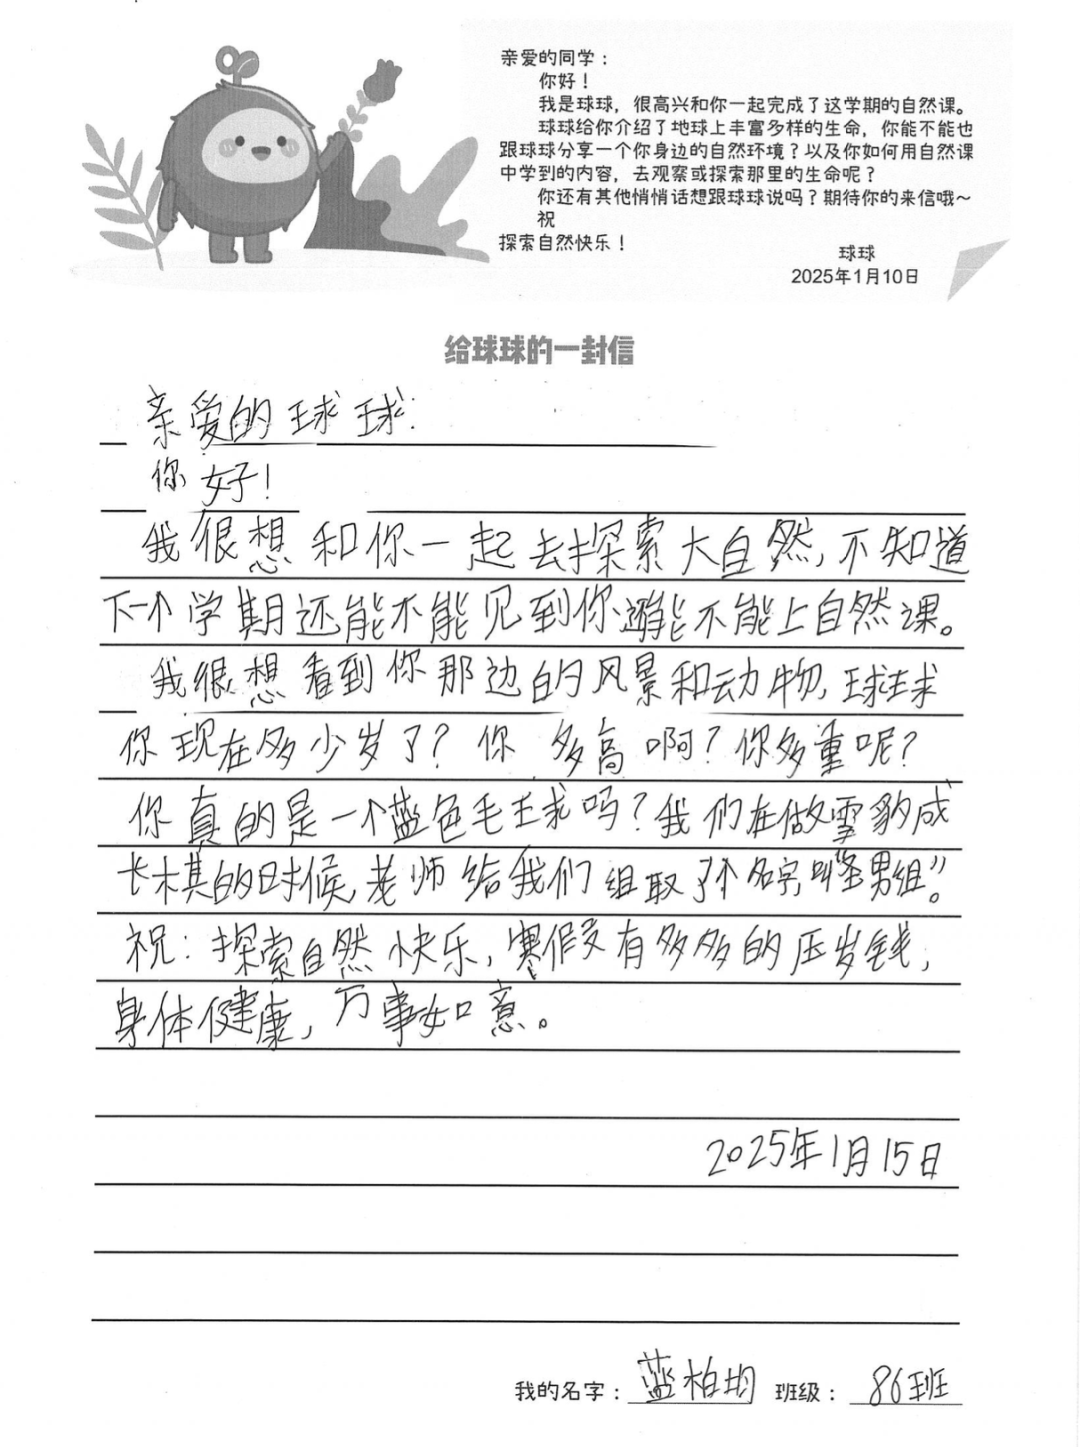 亲爱的同学：
你好！
我是球球，很高兴和你一起完成了这学期的自然课。
球球给你介绍了地球上丰富多样的生命，你能不能也
跟球球分享一个你身边的自然环境？以及你如何用自然课
中学到的内容，去观察或探索那里的生命呢？
你还有其他悄悄话想跟球球说吗？期待你的来信哦～
祝
探索自然快乐！
球球
2025年1月10日
给球球的一封信
亲爱的球球：
你好！
我很想和你一起去探索大自然，不知道
下一个学期还能不能见到你，还能不能上自然课。
我很想看到你那边的风景和动物，球球
你现在多少岁了？你多高啊？你多重呢？
你真的是一个蓝色毛球吗？我们在做雪豹成
长棋的时候，老师给我们组取了个名字，叫“圣男组”。
祝：探索自然快乐，寒假有多多的压岁钱，
身体健康，万事如意。
2025年1月15日
我的名字：蓝柏均 班级：86班